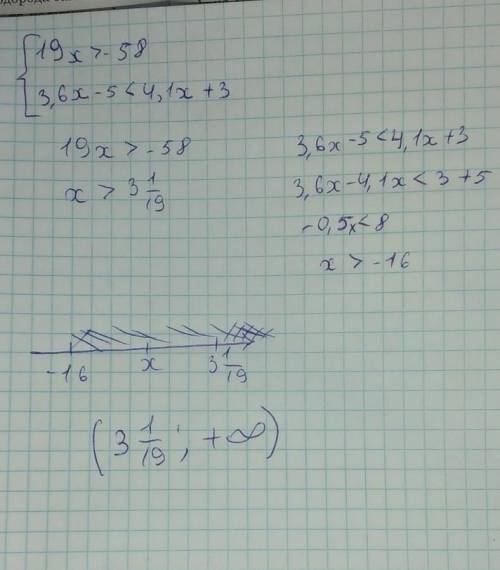 19x > -58
3,6x-5 < 4,1x+3
19x > -58
x > 3 1/19
3,6x-5 < 4,1x+3
3,6x-4,1x < 3+5
-0,5x < 8
x > -16
-16 x 3 1/19
(3 1/19; +∞)